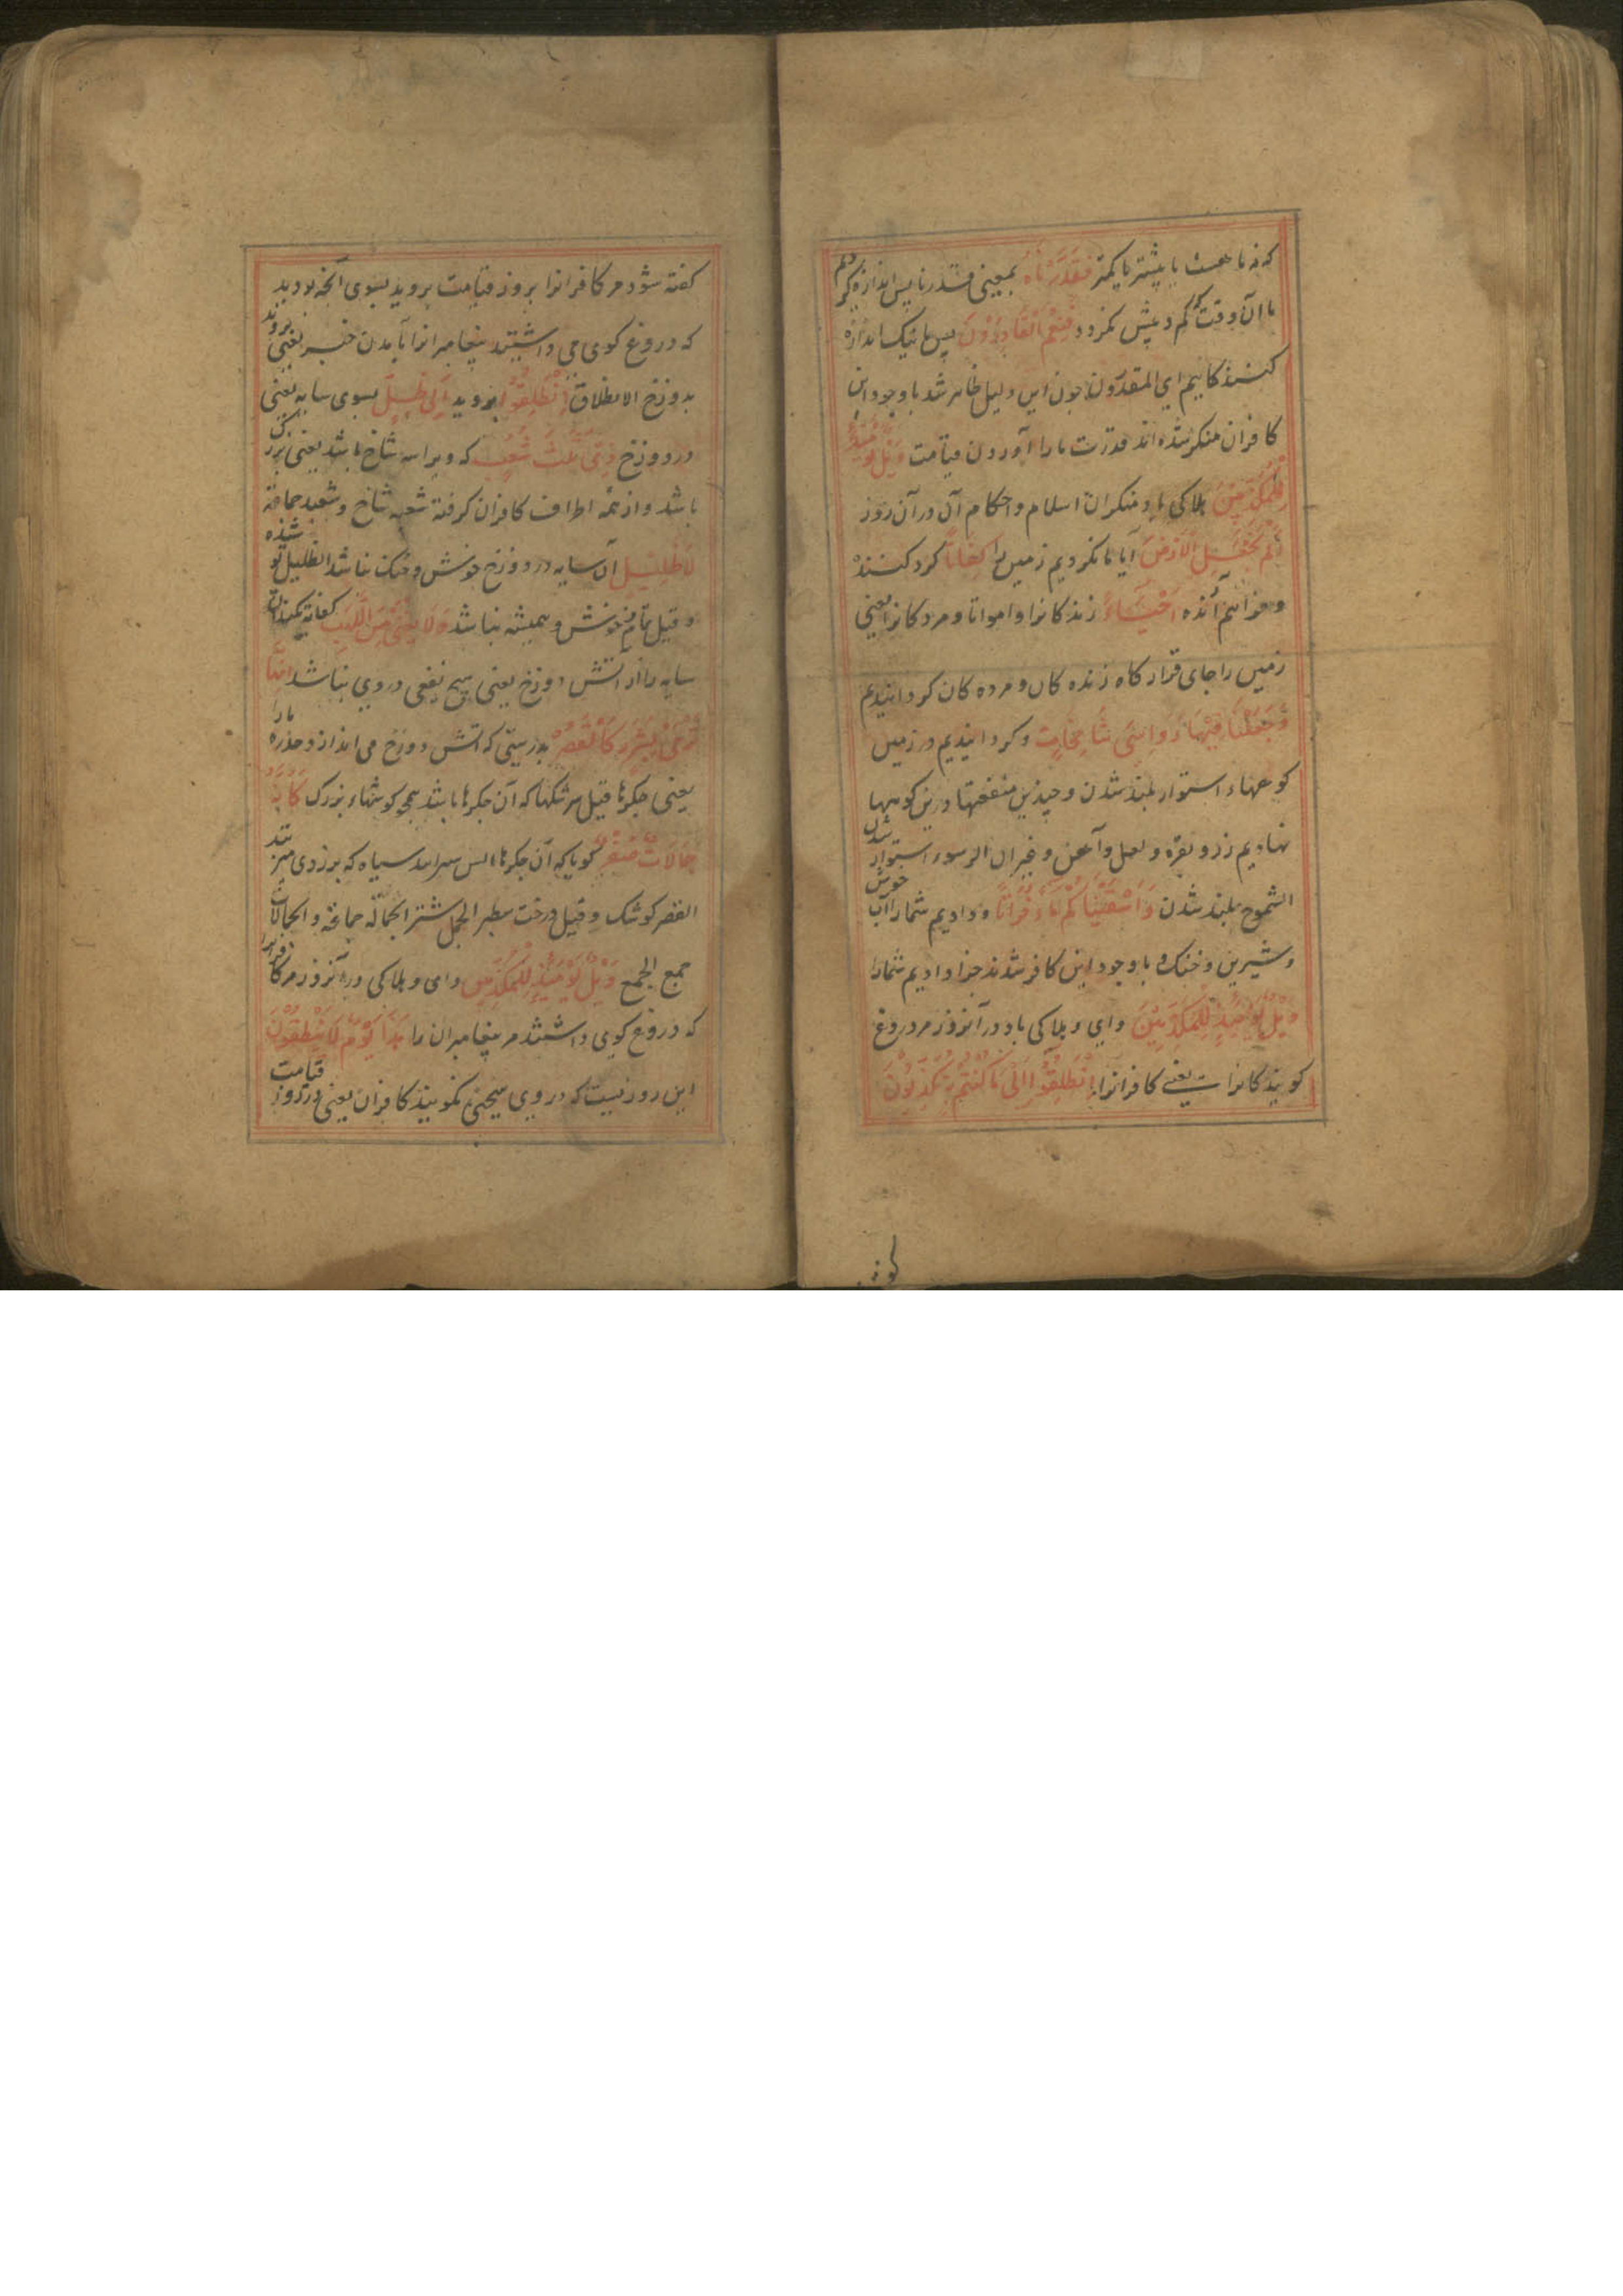 که نه ماهست یا بیشتر یا کمتر فَقَدَرْنَاهُ بمعنی قدرنا پس اندازه کردیم
ما آن وقت که کم و بیش نکردد فَنِعْمَ الْقَادِرُوْنَ پس ما نیک اندازه
کنندکانیم ای المقدرون چون این دلیل ظاهر شد با وجود این
کافران منکر شده اند قدرت ما را آوردن قیامت وَیْلٌ یَوْمَئِذٍ
لِّلْمُکَذِّبِیْنَ هلاکی باد منکران اسلام و احکام آن در آن روز
اَلَمْ نَجْعَلِ الْاَرْضَ آیا ما نکردیم زمین را کِفَاتًا کرد کننده
و فراهم آنده اَحْیَاءً زندکانرا و امواتا و مردکانرا یعنی
زمین را جای قرار کاه زنده کان و مرده کان کردانیدیم
وَجَعَلْنَا فِیْهَا رَوَاسِیَ شَامِخَاتٍ و کردانیدیم در زمین
کوهها استوار بلند شدن و چندین منفعتها درین کوهها
نهادیم زر و نقره و لعل و آهن و غیر آن الرسوء استوار شدن
الشموخ بلند شدن وَاَسْقَیْنَاکُمْ مَاءً فُرَاتًا و دادیم شما را آب خوش
و شیرین و خنک با وجود این کافر شدند جزا دادیم شما را
وَیْلٌ یَوْمَئِذٍ لِّلْمُکَذِّبِیْنَ وای و هلاکی باد در آنروز مر دروغ
کویندکانراست یعنی کافرانرا اِنْطَلِقُوْا اِلٰی مَا کُنْتُمْ بِهٖ تُکَذِّبُوْنَ
کفته شود مر کافرانرا بروز قیامت بروید بسوی آنچه بودید
که دروغ کوی می داشتید پیغامبرانرا بآمدن خبر یعنی بروید
بدوزخ الانطلاق اِنْطَلِقُوْا بروید اِلٰی ظِلٍّ بسوی سایه یعنی
در دوزخ ذِیْ ثَلٰثِ شُعَبٍ که ویرا سه شاخ باشد یعنی بزرک
باشد و از همه اطراف کافران کرفته شعبه شاخ و شعب جماعة
لَا ظَلِیْلٍ آن سایه در دوزخ خوش و خنک نباشد الظلیل پوشیده
و قیل تمام خوش و همیشه نباشد وَلَا یُغْنِیْ مِنَ اللَّهَبِ کفایة نکند آن
سایه را از آتش دوزخ یعنی هیچ نفعی در وی نباشد اِنَّهَا
تَرْمِیْ بِشَرَرٍ کَالْقَصْرِ بدرستی که آتش دوزخ می اندازد خدره ها را
یعنی جکرها قیل سرشکها که آن جکرها باشد همچو کوشکها بزرک کَاَنَّهٗ
جِمَالَاتٌ صُفْرٌ کویا که آن جکرها سیاه که بزردی میزند
القصر کوشک و قیل درخت سطبر الجمل شتر الجمالة جماعة و الجمالات
جمع الجمع وَیْلٌ یَوْمَئِذٍ لِّلْمُکَذِّبِیْنَ وای و هلاکی در آنروز مر کافرانرا
که دروغ کوی داشتند مر پیغامبران را هٰذَا یَوْمُ لَا یَنْطِقُوْنَ
این روزیست که در وی سخن نکویند کافران یعنی در روز قیامت